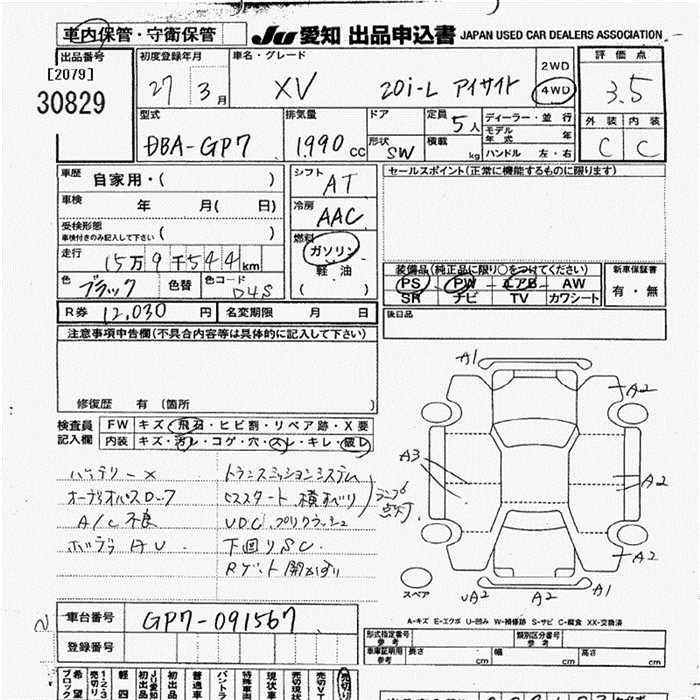 車内保管・守衛保管
JU 愛知 出品申込書 JAPAN USED CAR DEALERS ASSOCIATION
出品番号
[2079]
30829
初度登録年月
27 3月
車名・グレード
XV 20i-L アイサイト
2WD
4WD
評価点
3.5
外装 内装
C C
型式
DBA-GP7
排気量
1,990 cc
ドア
形状 SW
定員 5人
積載 kg
ディーラー・並行
モデル年式 年
ハンドル 左・右
車歴 自家用・( )
車検 年 月( 日)
受検形態
車検付きのみ記入して下さい ( )
走行 15万9千544km
色 ブラック 色替 色コード D4S
シフト AT
冷房 AAC
燃料 ガソリン
軽油
( )
セールスポイント(正常に機能するものに限ります)
装備品(純正品に限り○をつけてください)
PS PW エアB AW
SR ナビ TV カワシート
新車保証書
有・無
後日品
R券 12,030円 名変期限 月 日
注意事項申告欄(不具合内容等は具体的に記入して下さい)
修復歴 有 (箇所 )
検査員記入欄
FW キズ・飛石・ヒビ割・リペア跡・X要
内装 キズ・汚レ・コゲ・穴・スレ・キレ・破レ
バッテリーX トランスミッションシステム
オーディオパスロック ヒルスタート 横すべり ランプ点灯
A/C不良 VDC プリクラッシュ
ボデラ AU 下回りSC.
Rゲート
A1
A2
A3
A2
A2
UA2 A2 A1
スペア
A-キズ E-エクボ U-凹み W-補修跡 S-サビ C-腐食 XX-交換済
車台番号 GP7-091567
登録番号
型式指定番号 参考
類別区分番号 参考
車庫証明用 参考 長さ cm 幅 cm 高さ cm